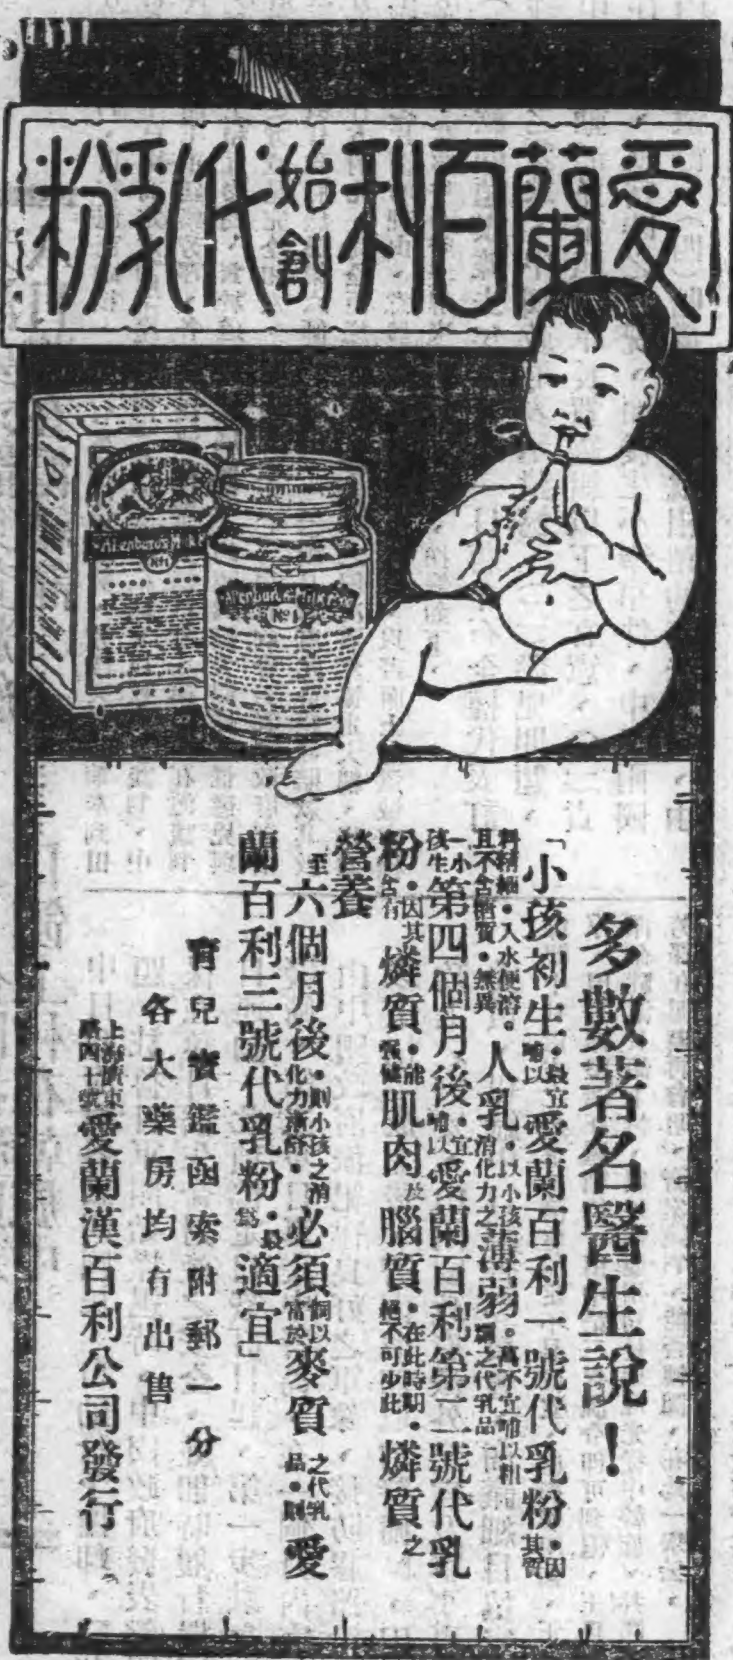 愛蘭百利始創代乳粉
Allenburys Milk
No 1
Allenburys Milk Food
No 1
多數著名醫生說！
「小孩初生・最宜哺以愛蘭百利一號代乳粉・因其質
料精細・入水便溶・且不含糖質・無異人乳・以小孩消化力之薄弱・萬不宜哺以粗糲之代乳品
小孩生第四個月後・宜哺以愛蘭百利第二號代乳
粉・因其含有燐質・能強健肌肉及腦質・在此時期・絕不可少此・燐質之
營養
至六個月後・則小孩之消化力漸舒・必須飼以富於麥質之代乳品・則愛
蘭百利三號代乳粉・最為適宜」
育兒寶鑑函索附郵一分
各大藥房均有出售
上海廣東路四十號愛蘭漢百利公司發行